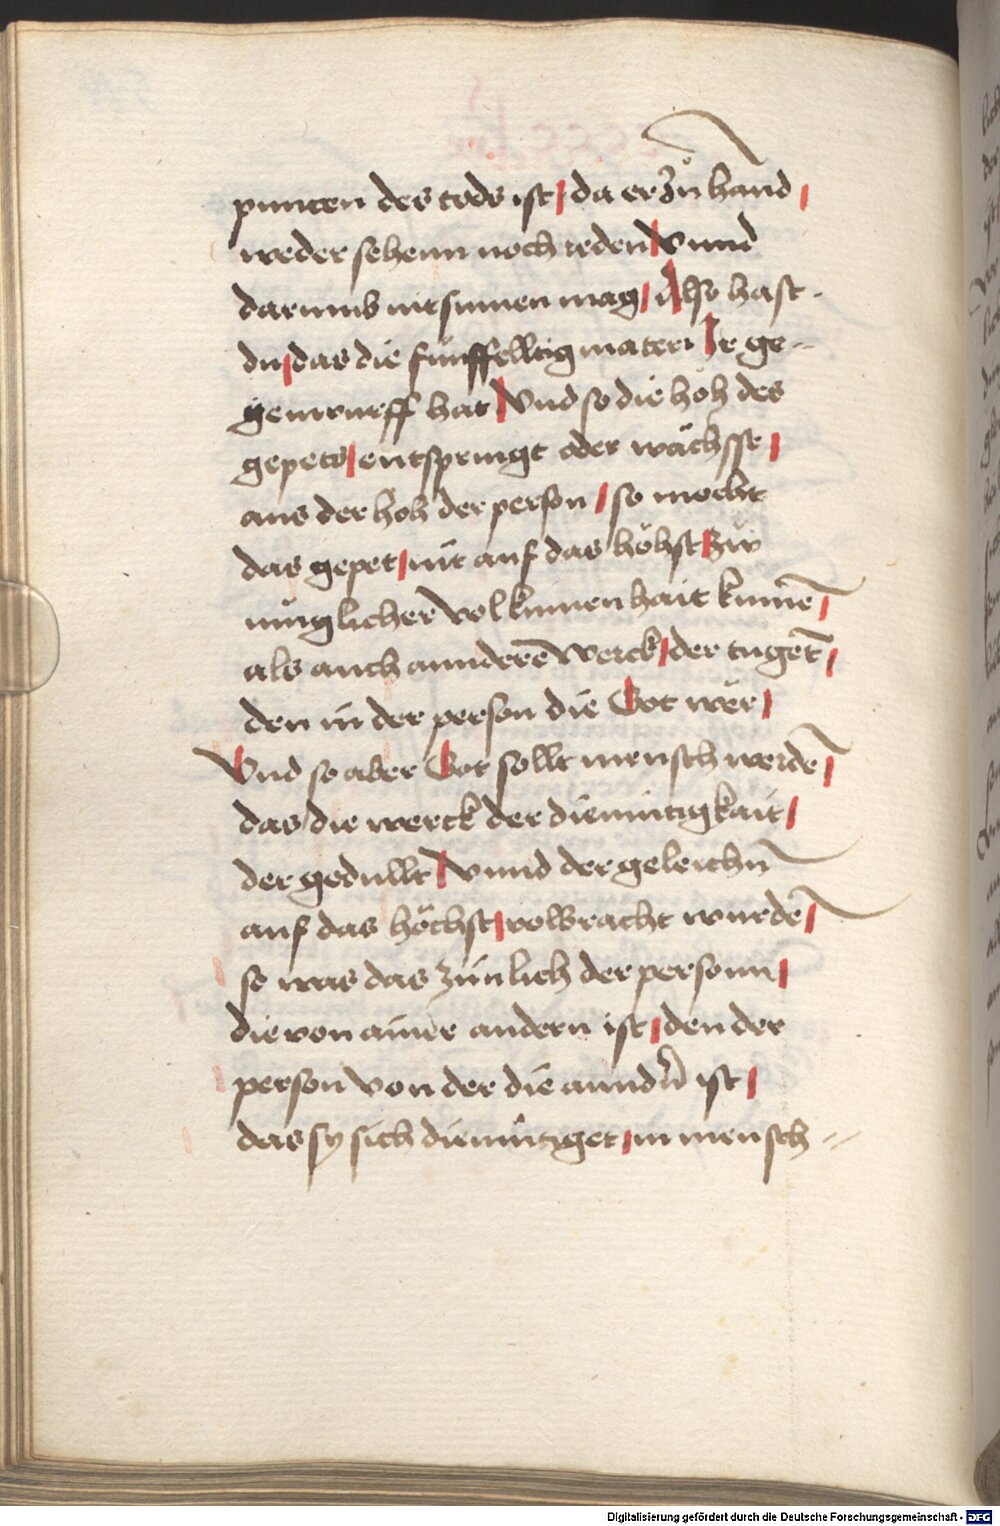 puncten des tods ist / da er zů hand /
weder sehenn noch reden / vnnd
darumb nit sunnen mag / Also hast
du / das die fünffelltig materi Ir ge=
genwurff hat / Vnd so die höh des
gepets / entspringt oder wächsst /
aus der höh der person / so möcht
das gepet / nit auf das höhst / zů
müglicher volkumenhait kumē /
als auch annderē werck / der tugēt /
den in der person die Got wer /
Vnd so aber Got sollt mensch werdē /
das / die werck der diemütigkait /
der gedullt / vnnd der geleichn̄
auf das höchst / volbracht wurdē /
so was das zimlich der personn /
die von ainer andern ist / den der
person von der die anndn̄ ist /
das sy sich diemütiget / in mensch=
Digitalisierung gefördert durch die Deutsche Forschungsgemeinschaft - DFG